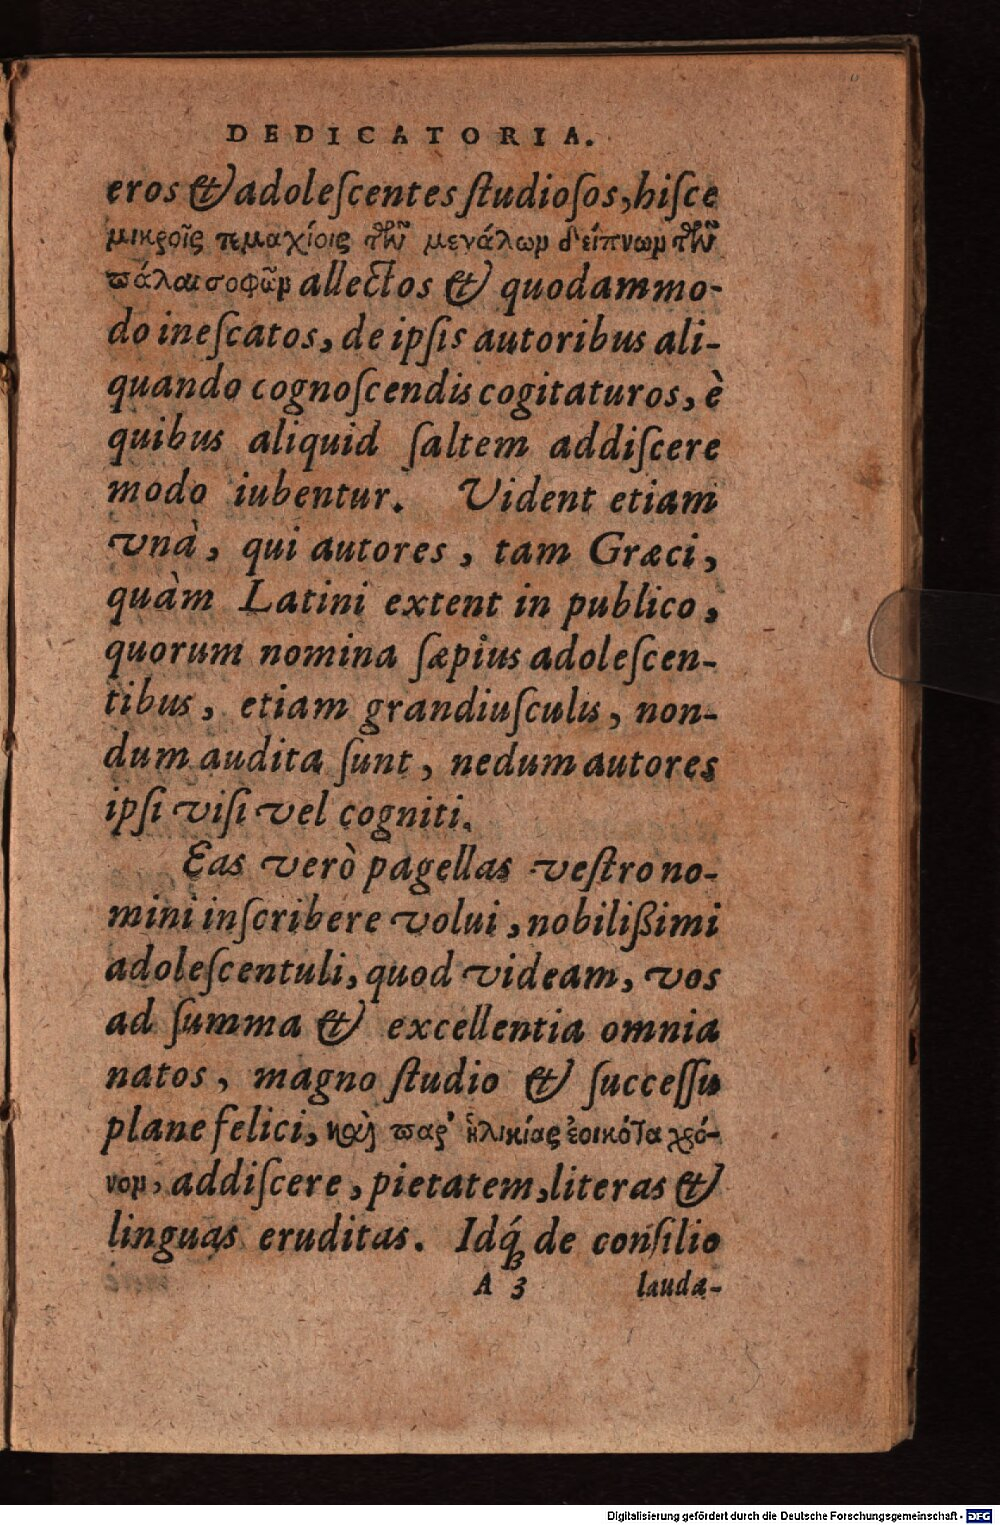 DEDICATORIA.
eros & adoleſcentes ſtudioſos, hiſce
μικροῖς τεμαχίοις τῶν μεγάλων δείπνων τῶν
πάλαι σοφῶν allectos & quodammo-
do ineſcatos, de ipſis autoribus ali-
quando cognoſcendis cogitaturos, è
quibus aliquid ſaltem addiſcere
modo iubentur. Vident etiam
vnà, qui autores, tam Græci,
quàm Latini extent in publico,
quorum nomina ſæpius adoleſcen-
tibus, etiam grandiuſculis, non-
dum audita ſunt, nedum autores
ipſi viſi vel cogniti.
Eas verò pagellas veſtro no-
mini inſcribere volui, nobilißimi
adoleſcentuli, quod videam, vos
ad ſumma & excellentia omnia
natos, magno ſtudio & ſucceſſu
plane felici, καὶ παρ' ἡλικίας ἐοικότα χρό-
νον, addiſcere, pietatem, literas &
linguas eruditas. Idq́ꝫ de conſilio
A 3 lauda-
Digitalisierung gefördert durch die Deutsche Forschungsgemeinschaft - DFG